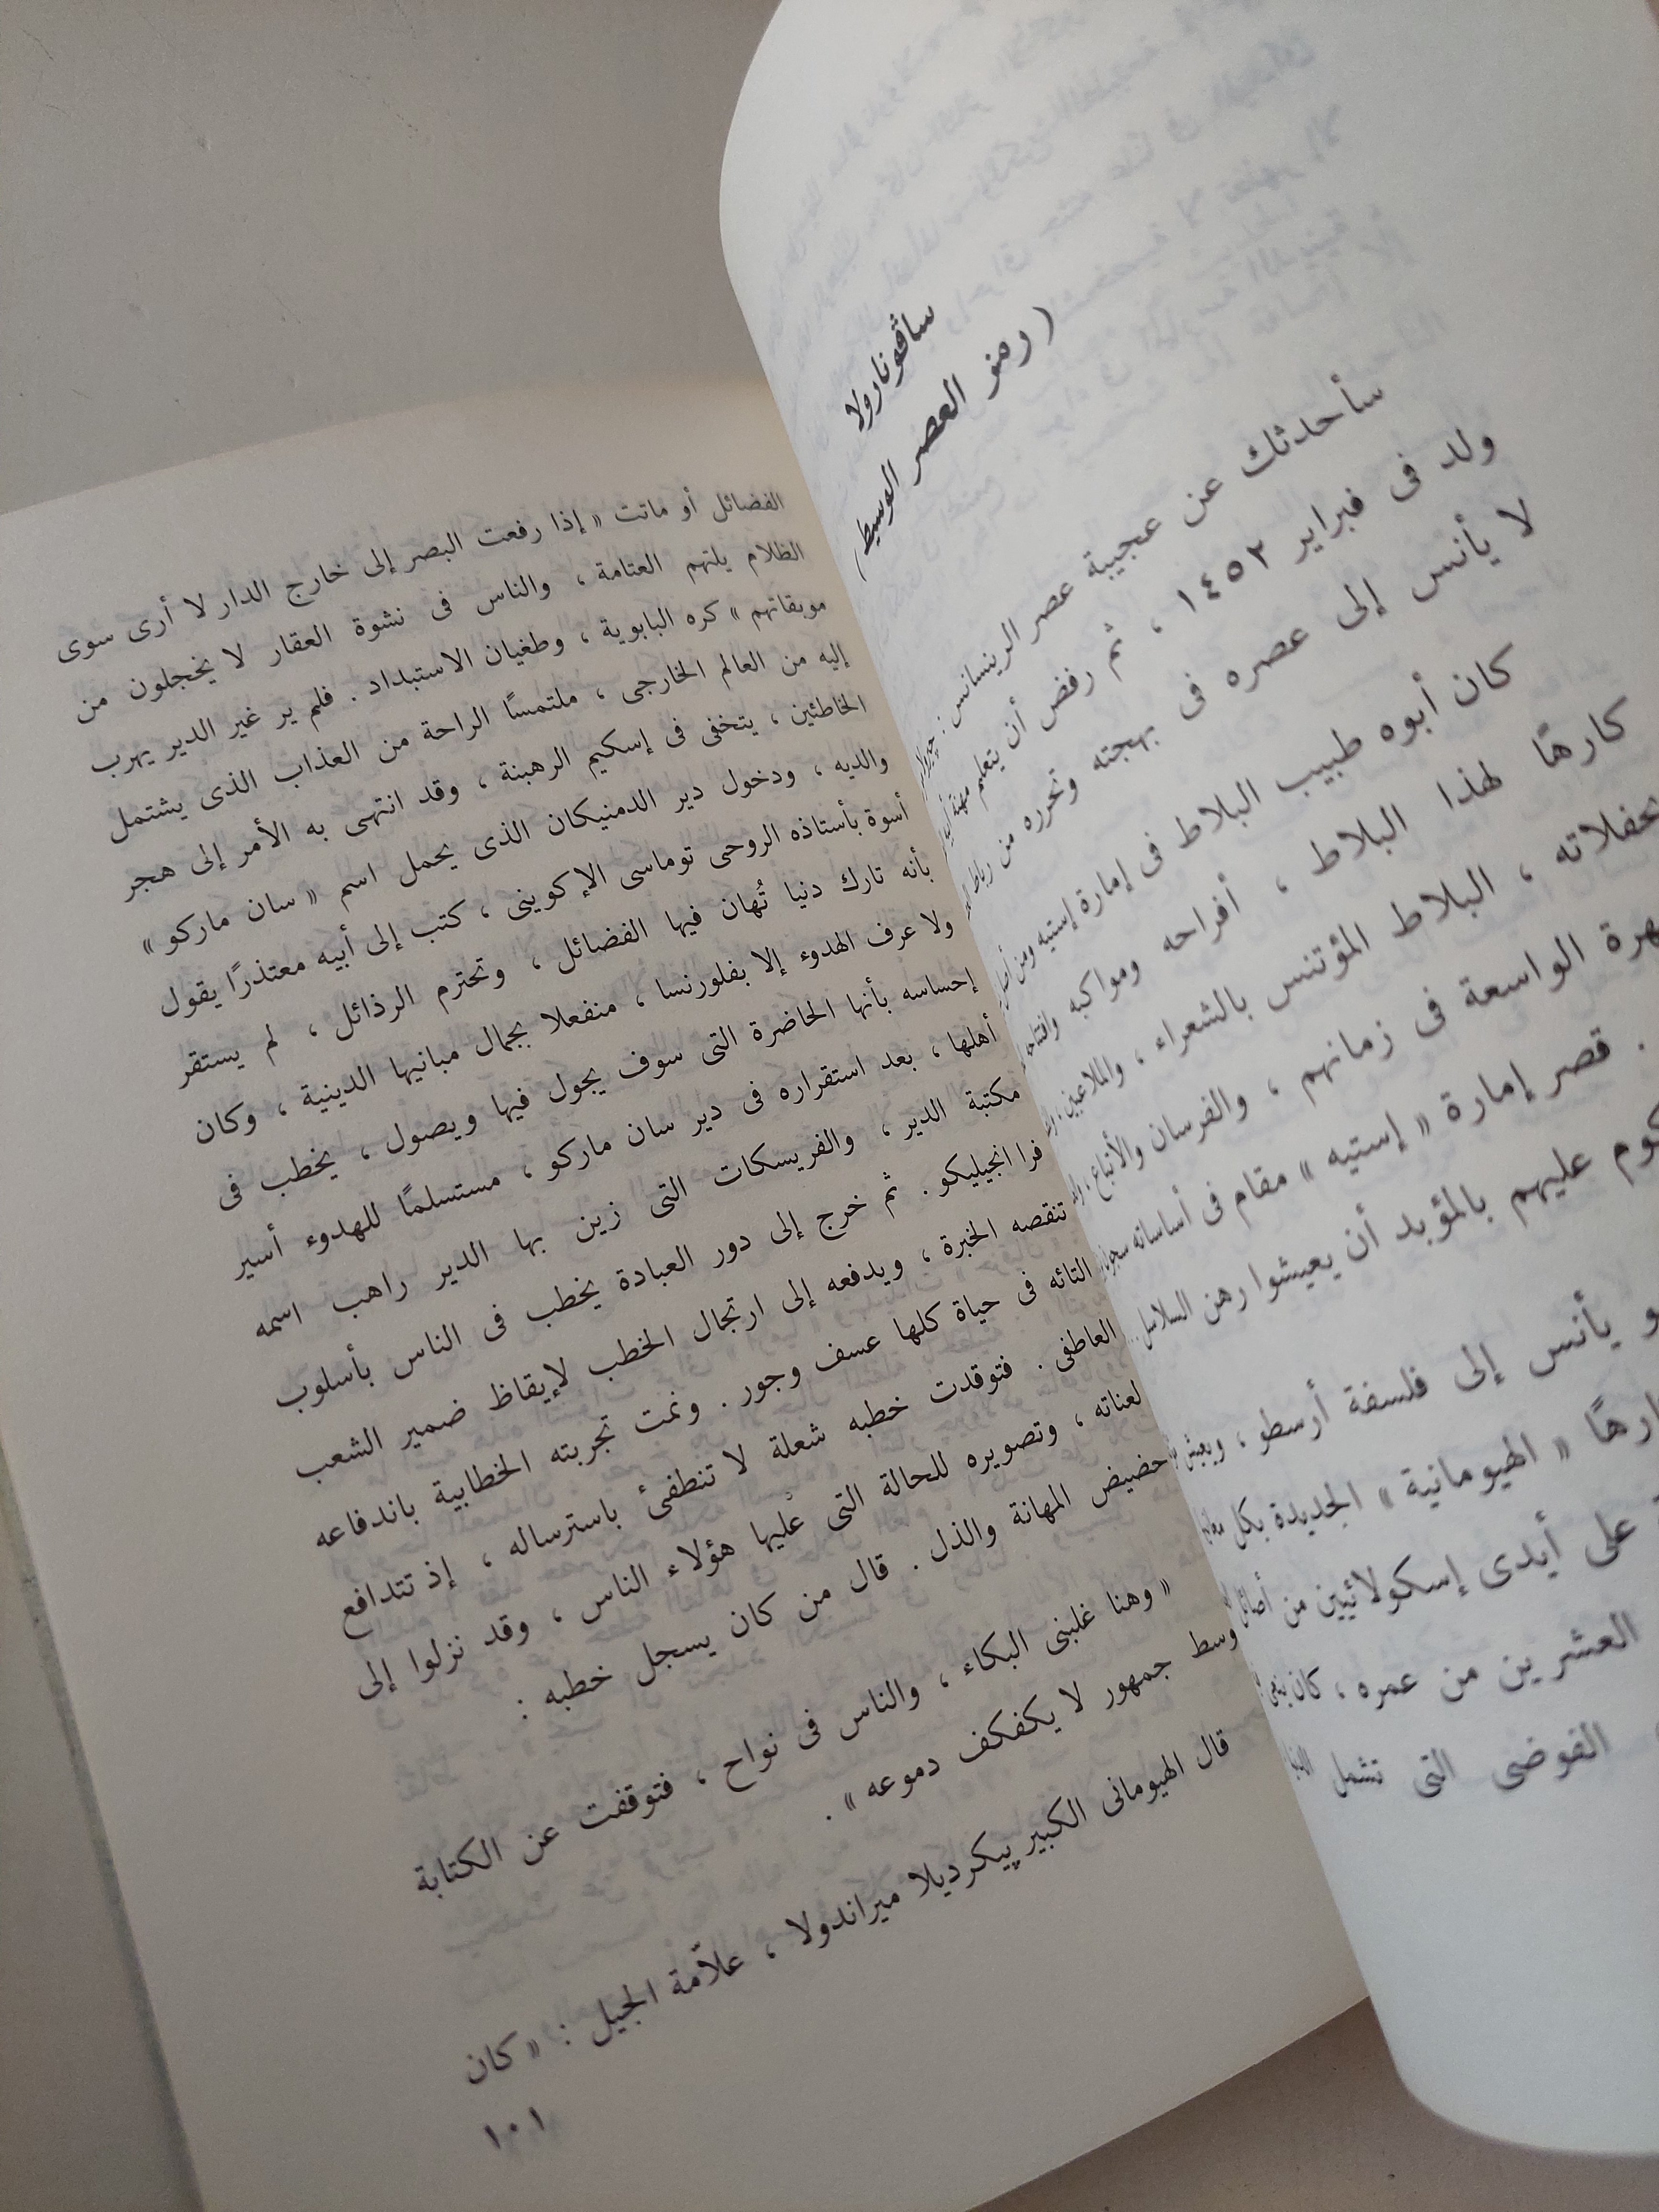 سافونارولا
( رمز العصر الوسيط )
سأحدثك عن عجيبة عصر الرينسانس :
ولد فى فبراير ١٤٥٢ ، ثم رفض أن يتعلم مهنة
لا يأنس إلى عصره فى بهجته وتحرره من رباط
كان أبوه طبيب البلاط فى إمارة إستيه ومن
كارهًا لهذا البلاط ، أفراحه ومواكبه
، البلاط المؤتنس بالشعراء ، والملاعين ،
الواسعة فى زمانهم ، والفرسان والأتباع ،
. قصر إمارة « إستيه » مقام فى أساساته
عليهم بالمؤبد أن يعيشوا رهن السلاسل ..
يأنس إلى فلسفة أرسطو ، ويعيش
« الهيومانية » الجديدة بكل
على أيدى إسكولائيين من
العشرين من عمره ، كان
الفوضى التى تشمل
الفضائل أو ماتت « إذا رفعت البصر إلى خارج الدار لا أرى سوى
الظلام يلتهم العتامة ، والناس فى نشوة العقار لا يخجلون من
موبقاتهم » كره البابوية ، وطغيان الاستبداد . فلم ير غير الدير يهرب
إليه من العالم الخارجى ، ملتمسًا الراحة من العذاب الذى يشتمل
الخاطئين ، يتخفى فى إسكيم الرهبنة ، وقد انتهى به الأمر إلى هجر
والديه ، ودخول دير الدمنيكان الذى يحمل اسم « سان ماركو »
أسوة بأستاذه الروحى توماسى الإكوينى ، كتب إلى أبيه معتذرًا يقول
بأنه تارك دنيا تُهان فيها الفضائل ، وتحترم الرذائل ، لم يستقر
ولا عرف الهدوء إلا بفلورنسا ، منفعلا بجمال مبانيها الدينية ، وكان
إحساسه بأنها الحاضرة التى سوف يجول فيها ويصول ، يخطب فى
أهلها ، بعد استقراره فى دير سان ماركو ، مستسلمًا للهدوء أسير
مكتبة الدير ، والفريسكات التى زين بها الدير راهب اسمه
فرا انجيليكو . ثم خرج إلى دور العبادة يخطب فى الناس بأسلوب
تنقصه الخبرة ، ويدفعه إلى ارتجال الخطب لإيقاظ ضمير الشعب
التائه فى حياة كلها عسف وجور . ونمت تجربته الخطابية باندفاعه
العاطفى . فتوقدت خطبه شعلة لا تنطفئ باسترساله ، إذ تتدافع
لعناته ، وتصويره للحالة التى عليها هؤلاء الناس ، وقد نزلوا إلى
حضيض المهانة والذل . قال من كان يسجل خطبه :
« وهنا غلبنى البكاء ، والناس فى نواح ، فتوقفت عن الكتابة
وسط جمهور لا يكفكف دموعه » .
قال الهيومانى الكبير پيكرديلا ميراندولا ، علاّمة الجيل : « كان
١٠١